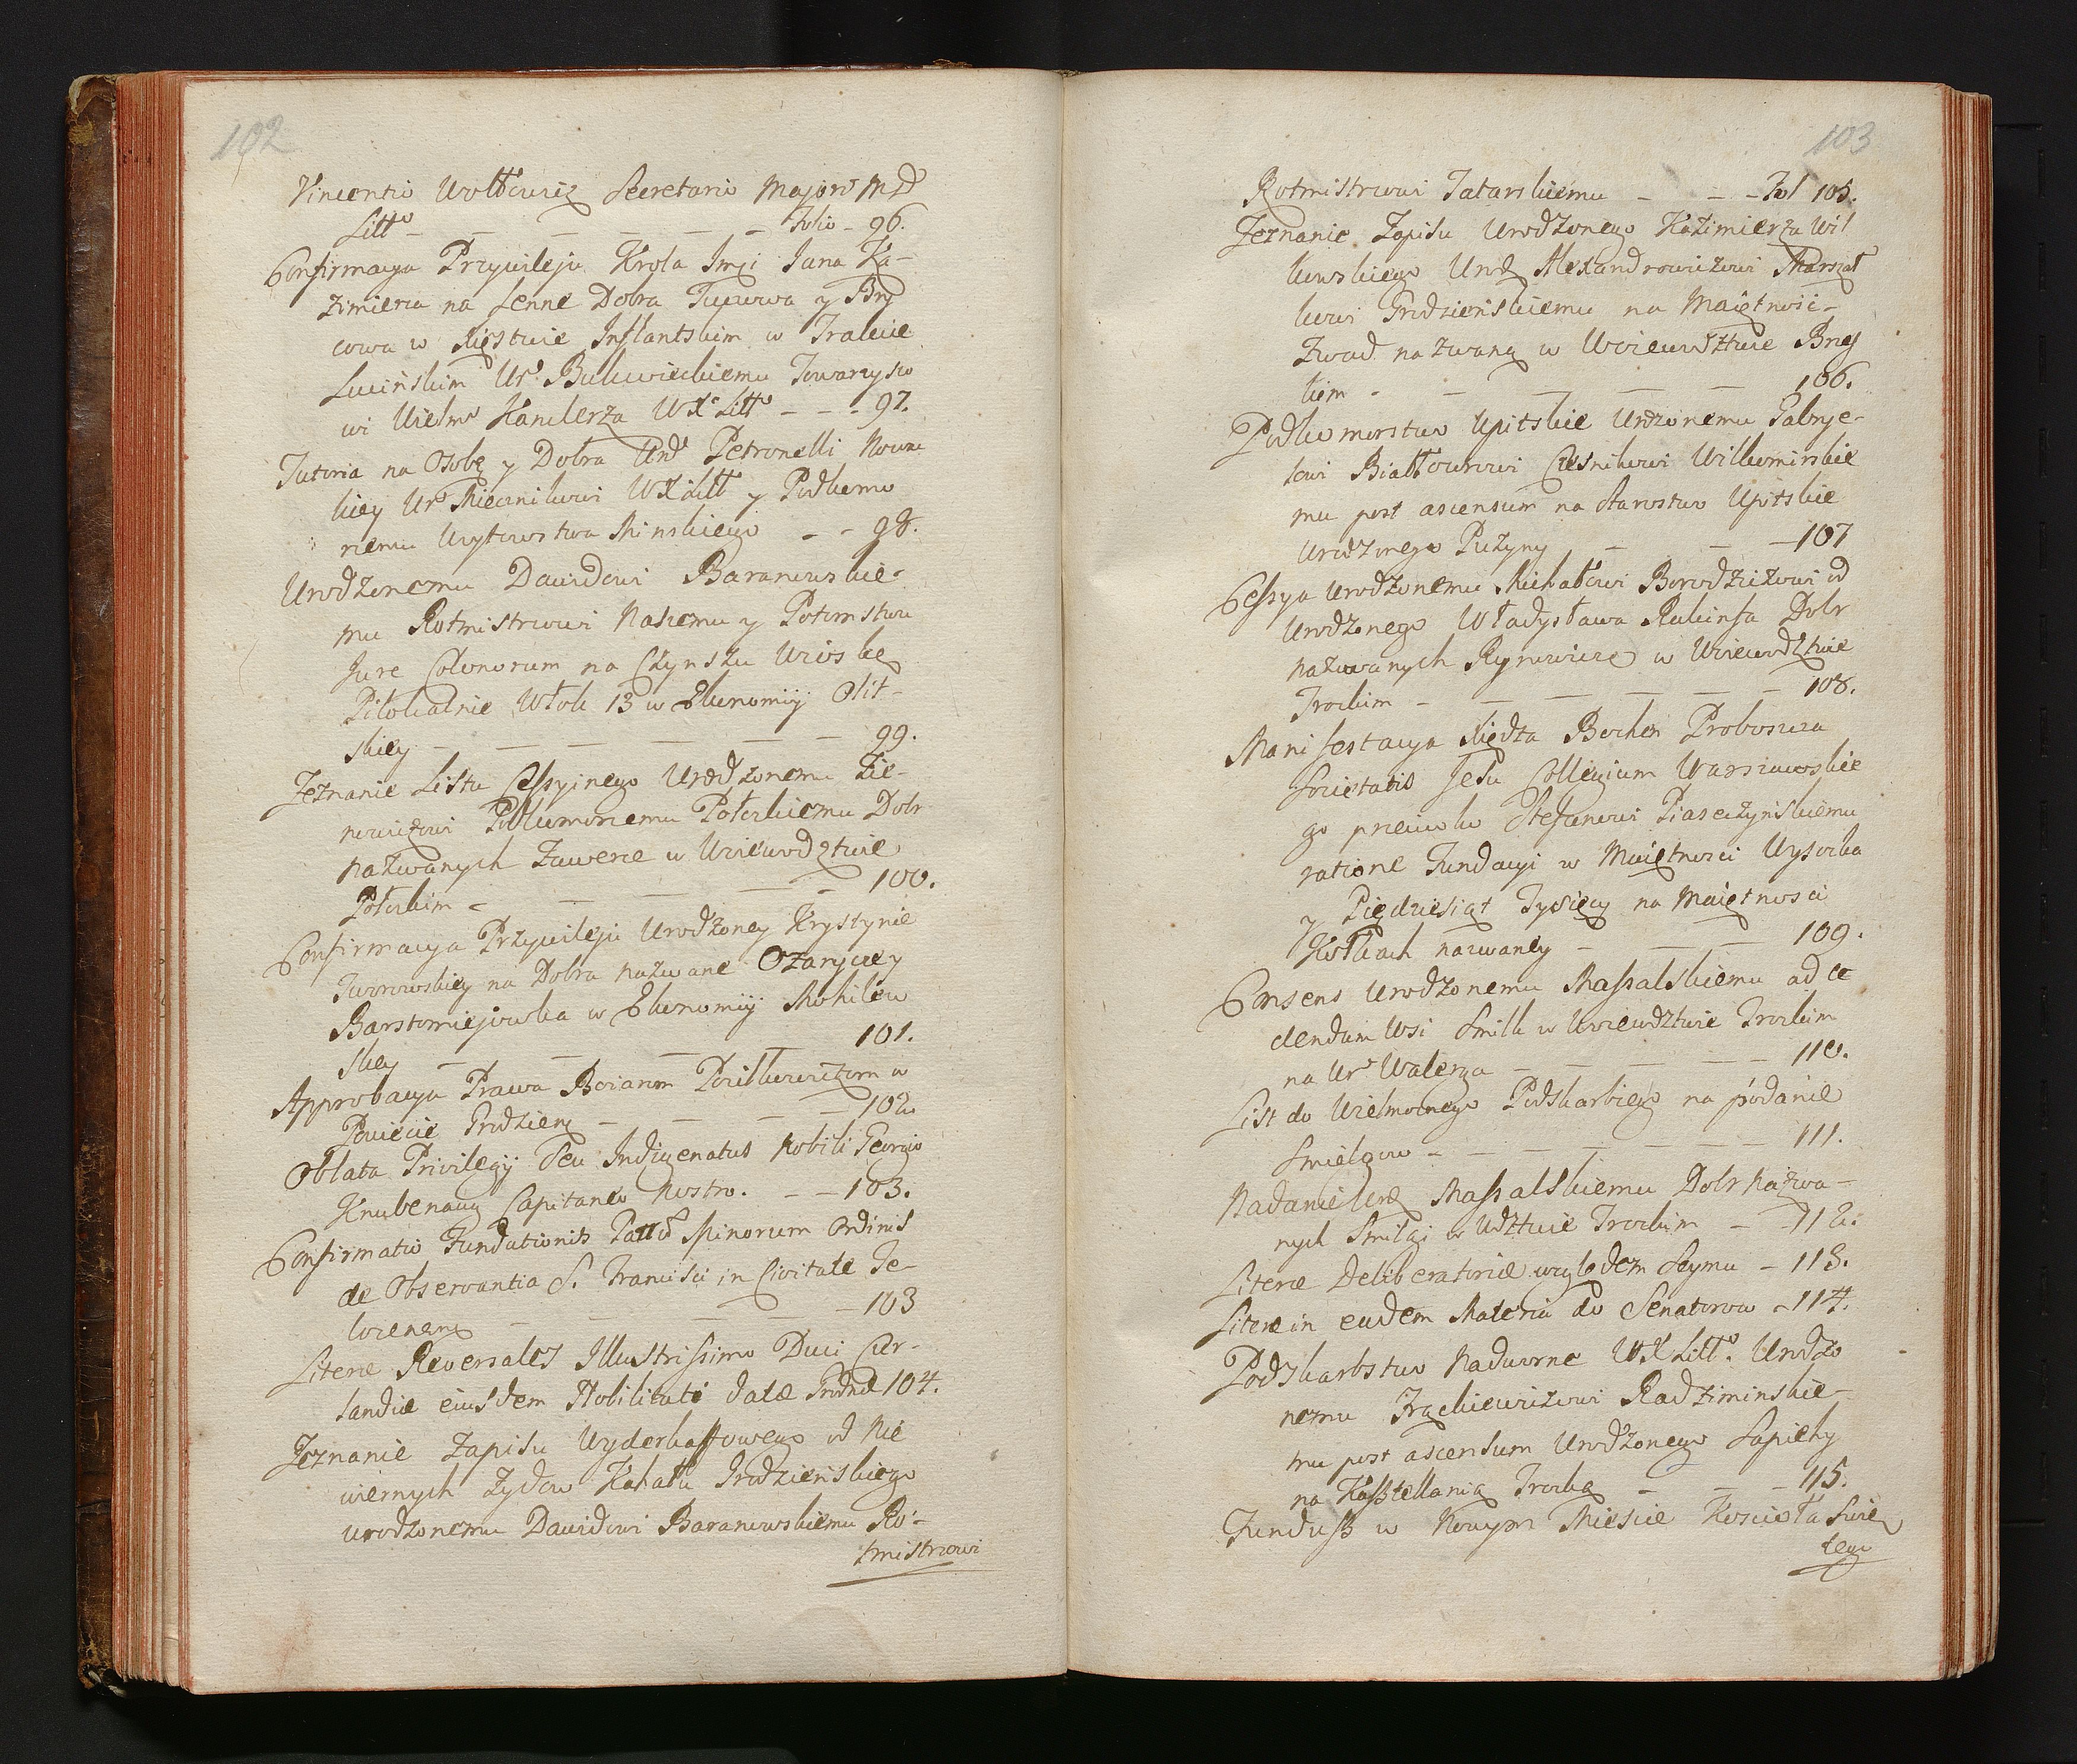 102
Vincentio Wołłowicz Secretario Majori MD
Litto Folio 96.
Confirmacya Przywileju Krola Jmci Jana Ka-
zimierza na Lenne Dobra
cowa w Xięstwie Inflantskim w Trakcie
Lucińskim Ur. Bukwieckiemu Towarzyszo
wi Wielmo Kanclerza WXLitto - - - 97.
Tutoria na Osobę y Dobra Urd Petronelli
kiey Ur Miecznikowi WXLitt y Podkomo
rzemu Mińskiego - - 98.
Urodzonemu Dawidowi Baranowskie-
mu Rotmistrzowi Naszemu y Potomstwu
Jure Colonorum na Czynszu Wioskę
Włok 13 w Ekonomij Olit-
skiey - 99.
Zeznanie Listu Cessyjnego Urodzonemu Zie-
nowiczowi Podkomorzemu Połockiemu Dobr
nazwanych Zawercze w Wiewodztwie
Połockim - 100.
Confirmacya Przywileju Urodzoney Krystynie
Tworowskiey na Dobra nazwane Ozaryce y
Barstomiejowska w Ekonomij Mohilew
skiey - 101.
Approbacya Prawa Boiarom w
Powiecie Grodzien - 102
Oblata Privilegij Seu Indigenatus Nobili Georgio
Capitaneo Nostro. - - 103.
Confirmatio Fundationis Minorum Ordinis
de Observantia S. Francisci in Civitate Te-
- 103
Literæ Reversales Illustrissimo Duci Cur-
landiæ eiusdem Nobilitati datæ 104.
Zeznanie Zapisu Wyderkaffowego od Nie
wiernych Zydow Kahału Grodzieńskiego
urodzonemu Dawidowi Baranowskiemu Ro-
tmistrzowi
103
Rotmistrzowi Tatarskiemu - - - Fol 105.
Zeznanie Zapisu Urodzonego Kazimierza Wil
kowskiego Urd Alexandrowiczowi Marszał
kowi Grodzieńskiemu na Maiętność-
nazwaną w Woiewodztwie Brzes
kim - 106.
Podkomorstwo Upitskie Urdzonemu Gabrye-
lowi Białłozorowi Czesnikowi Wiłkomirskie
mu post ascensum na Starostwo Upitskie
Urodzonego Puzyny - 107
Cessya Urodzonemu Michałowi Borodziczowi od
Urodzonego Władysława Dobr
nazwanych w Wiewodztwie
Trockim - 108.
Manifestacya Xiędza Bochen Proboszcza
Societatis Jesu Collegium Warszawskie
go przeciwko Stefanowi Piaseczyńskiemu
ratione Fundacyi w Maiętnosci Wysocka
y Pięćdziesiąt Tysięcy na Maiętnosci
Kołkach nazwaney - 109.
Consens Urodzonemu Massalskiemu ad ce
dendum Wsi Smilk w Woiewdztwie Trockim
na Ur - 110.
List do Wielmożnego Podskarbiego na pódanie
Smielgow - 111.
Nadanie Urd Massalskiemu Dobr Nazwa-
nych Smilgi w Wdztwie Trockim - 112.
Literæ Deliberatoriæ względem Seymu - 113.
Literæ in eadem Materia do Senatorow - 114.
Podskarbstwo Nadworne WXLitto. Urodzo
nemu Frąckiewiczowi Radziminskie-
mu post ascensum Urodzonego Sapiehy
na Kasztellanią Trocką - 115.
Fundusz w Nowym Miescie Koscioła Swię
tego